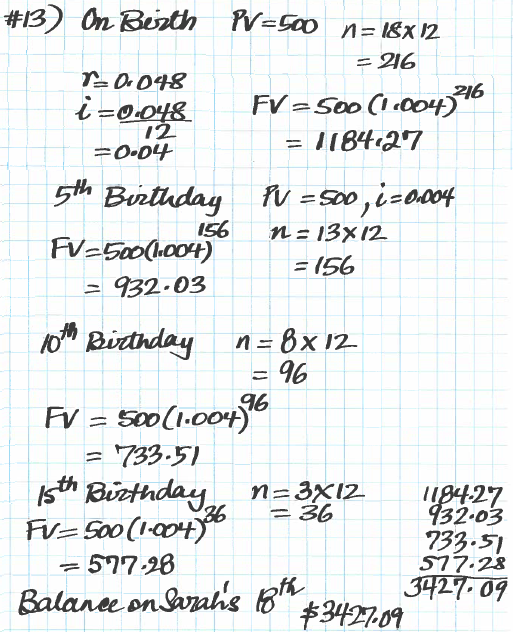 #13) On Birth PV=500 n=18x12
= 216
r=0.048
i=0.048/12
=0.04
FV=500(1.004)^216
= 1184.27
5th Birthday PV=500, i=0.004
FV=500(1.004)^156
n=13x12
=156
= 932.03
10th Birthday n=8x12
= 96
FV = 500(1.004)^96
= 733.51
15th Birthday n=3x12
= 36
FV=500(1.004)^36
= 577.28
1184.27
932.03
733.51
577.28
3427.09
Balance on Sarah's 18th $3427.09